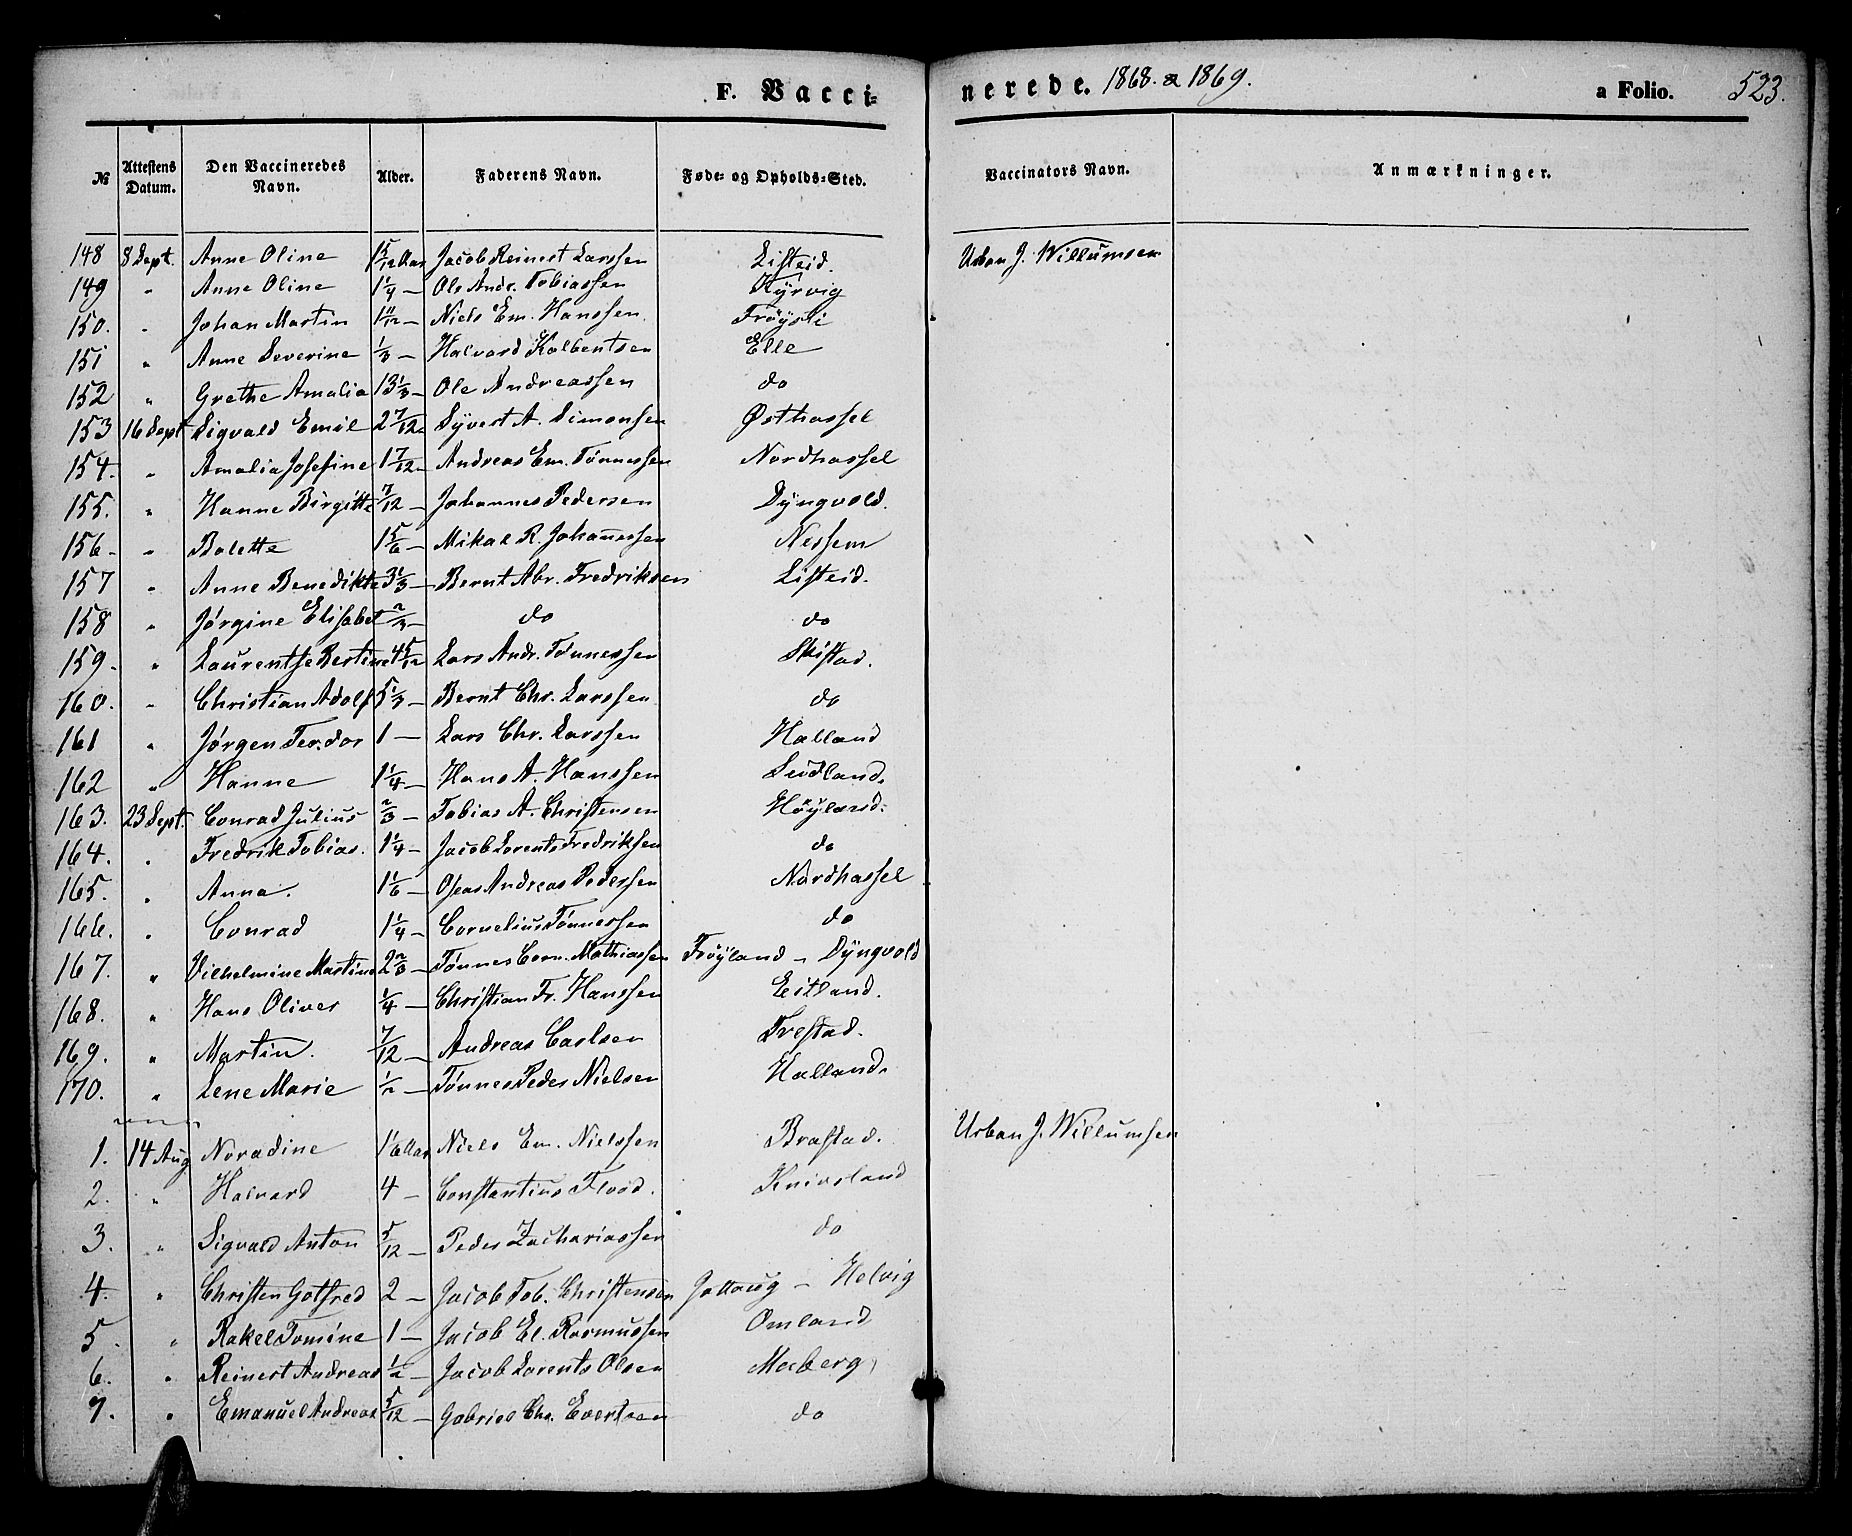 F. Vacci=
nerede. 1868. & 1869. a Folio. 523.
№ Attestens Datum. Den Vaccineredes Navn. Alder. Faderens Navn. Føde- og Opholds-Sted. Vaccinators Navn. Anmærkninger.
148 8 Sept. Anne Oline 1 5/12 Aar Jacob Reinert Larssen Listeid. Urban J. Willumsen
149 " Anne Oline 1 1/4 — Ole Andr. Tobiassen Kyrvig
150. " Johan Martin 1 11/12 — Niels Em. Hanssen.
151 " Anne Severine 1/3 — Halvard Kolbentsen Elle
152 " Grethe Amalia 13 1/3 — Ole Andreassen do
153 16 Sept Sigvald Emil 2 7/12 — Syvert A. Simonsen Østhassel
154. " Amalia Josefine 1 7/12 — Andreas Em. Tønnessen Nordhassel
155. " Hanne Birgitte 7/12 — Johannes Pedersen Dyngvold.
156 — " Bolette 1 5/6 — Mikal R. Johannessen Nessem
157 " Anne Benedikte 3 1/3 — Bernt Abr. Fredriksen Listeid.
158 " Jørgine Elisabet 2/3 — do do
159. " Laurentse Bertine 4 5/12 Lars Andr. Tønnessen Skistad.
160. " Christian Adolf 5 1/3 — Bernt Chr. Larssen do
161 " Jørgen Teodor 1 — Lars Chr. Larssen Halland
162 " Hanne 1 1/4 — Hans A. Hanssen
163. 23 Sept. Conrad Julius 2/3 — Tobias A. Christensen Høyland.
164. " Fredrik Tobias. 1 1/4 — Jacob Lorents Fredriksen do
165. " Anna. 1 1/6 — Oseas Andreas Pedersen Nordhassel
166. " Conrad 1 1/4 — Cornelius Tønnessen do
167. " Vilhelmine Martine 2 2/3 — Tønnes Corn. Mathiassen Frøyland — Dyngvold
168. " Hans Oliver 1/4 — Christian Fr. Hanssen Eitland.
169. " Martin. 7/12 — Andreas Carlsen Trestad.
170. " Lene Marie 1/2 — Tønnes Peder Nielsen Halland.
1. 14 Aug Noradine 1/6 Aar Niels Em. Nielssen Brastad. Urban J. Willumsen
2. " Halvard 4 — Constantius Flood. Knivsland
3. " Sigvald Anton 5/12 — Peder Zachariassen do
4. " Christen Gotfred 2 — Jacob Tob. Christensen Jøllaug — Helvig
5. " Rakel Tomine 1 — Jacob El. Rasmussen Omland
6. " Reinert Andreas 1/2 — Jacob Lorents Olsen Maberg
7. " Emanuel Andreas 5/12 — Gabriel Chr. Evertsen do